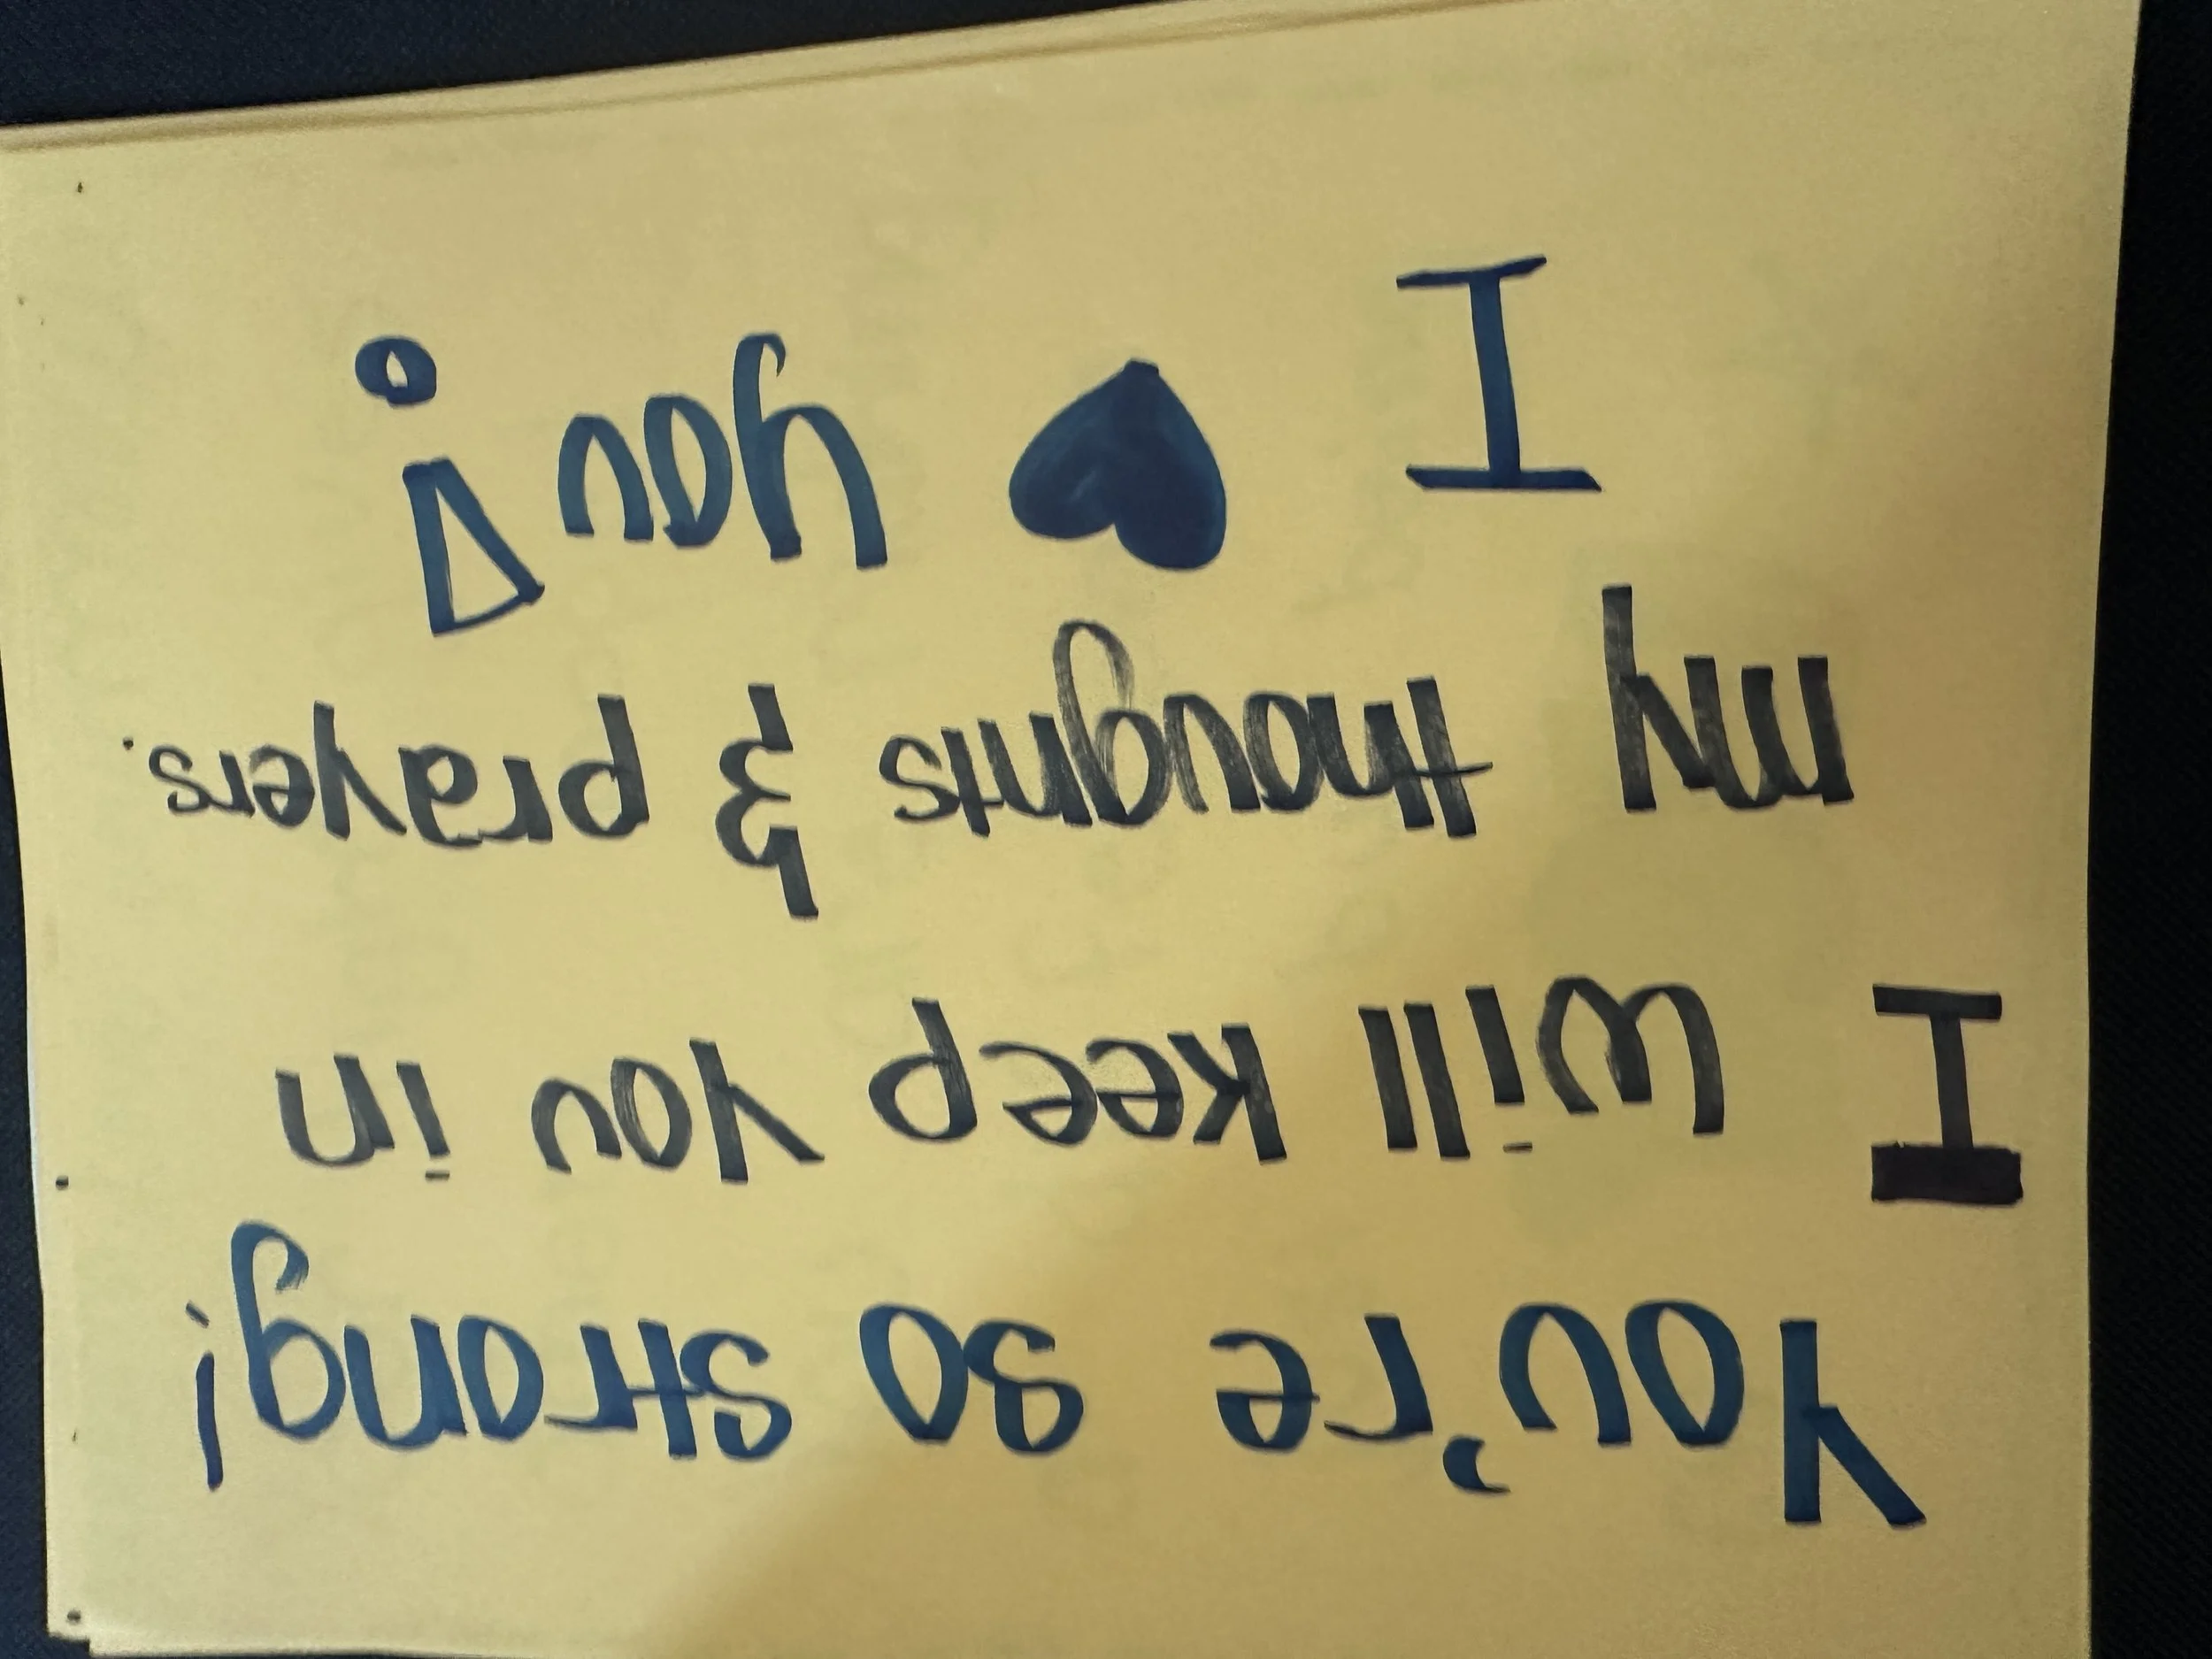 You're so strong!
I will keep you in
my thoughts & prayers.
I ♥ you!